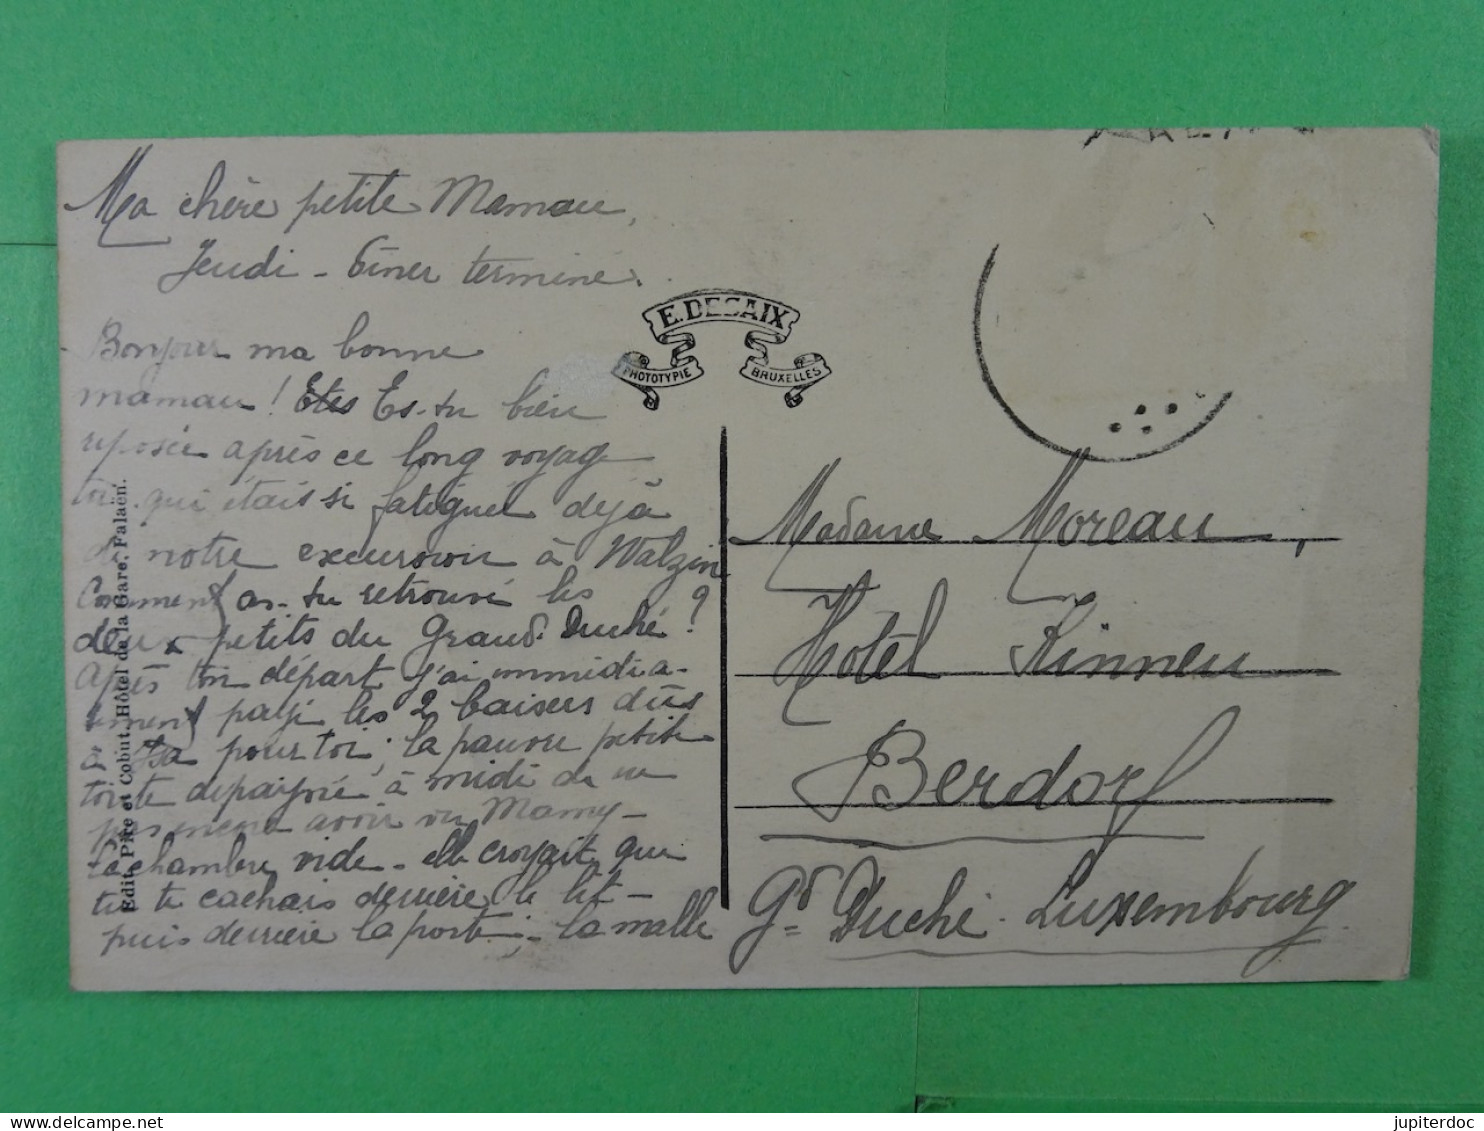 Ma chère petite Maman,
Jeudi - Dîner terminé.
Bonjour ma bonne
maman ! Etes Es-tu bien
reposée après ce long voyage
toi qui étais si fatiguée déjà
de notre excursion à Walzin
Comment as-tu retrouvé les
deux petits du Grand Duché ?
Après ton départ j'ai immédia-
tement payé les 2 baisers dûs
à pour toi ; la pauvre petite
toute dépaysée à midi de ne
pas encore avoir vu Mamy -
la chambre vide - elle croyait que
tu te cachais derrière le lit -
puis derrière la porte ; - la malle
Edit. Pire et Cobut. Hôtel de la Gare, Falaën.
E. DESAIX
PHOTOTYPIE BRUXELLES
Madame Moreau,
Hotel Kinnen
Berdorf
Gd Duché - Luxembourg
jupiterdoc